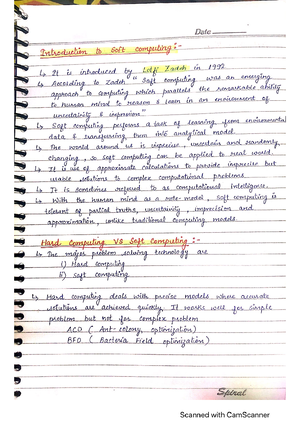 Date
Introduction to Soft computing :-
↳ It is introduced by Lotfi Zadeh in 1992
↳ According to Zadeh " Soft computing was an emerging
approach to computing which parallels the remarkable ability
to human mind to reason & learn in an environment of
uncertainity & imprecision"
↳ Soft computing performs a lot of learning from environmental
data & transferring them into analytical model.
↳ The world around us is imprecise, uncertain and randomly
changing, so soft computing can be applied to real world.
↳ It is use of approximate calculations to provide imprecise but
usable solutions to complex computational problems
↳ It is sometimes referred to as computational Intelligence.
↳ With the human mind as a role-model, Soft computing is
tolerent of partial truths, uncertainity, imprecision and
approximation, unlike traditional computing models
Hard Computing VS Soft Computing :-
↳ The major problem solving technology are
i) Hard computing
ii) Soft computing
↳ Hard computing deals with precise models where accurate
solutions are achieved quickly. It works well for simple
problem but not for complex problem
ACO ( Ant colony optimization)
BFO ( Bacteria Field optimization)
Spiral
Scanned with CamScanner